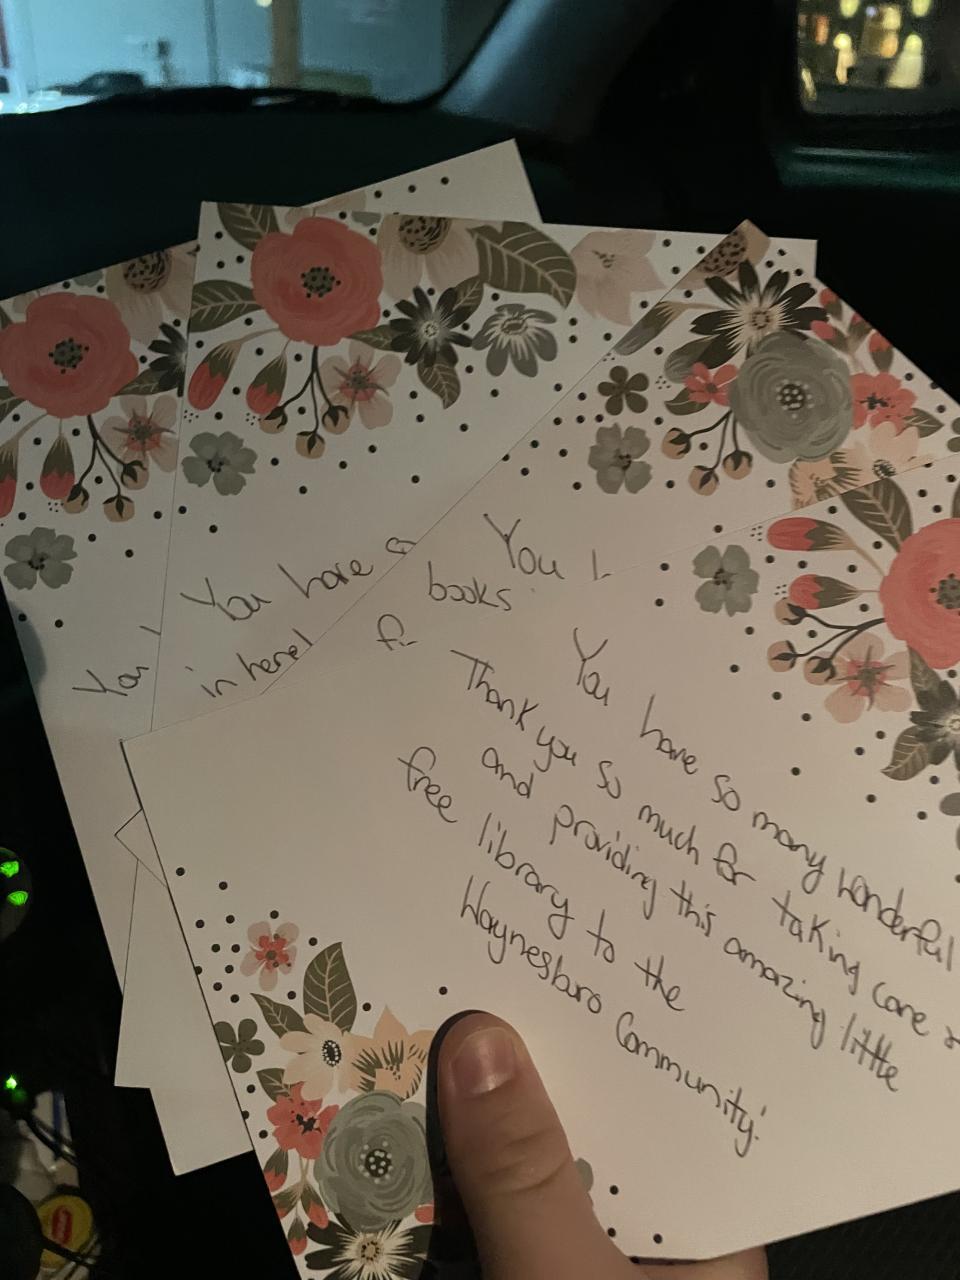 You
You have a
in here!
You
books
You have so many wonderful
Thank you so much for taking care
and providing this amazing little
free library to the
Waynesboro Community!